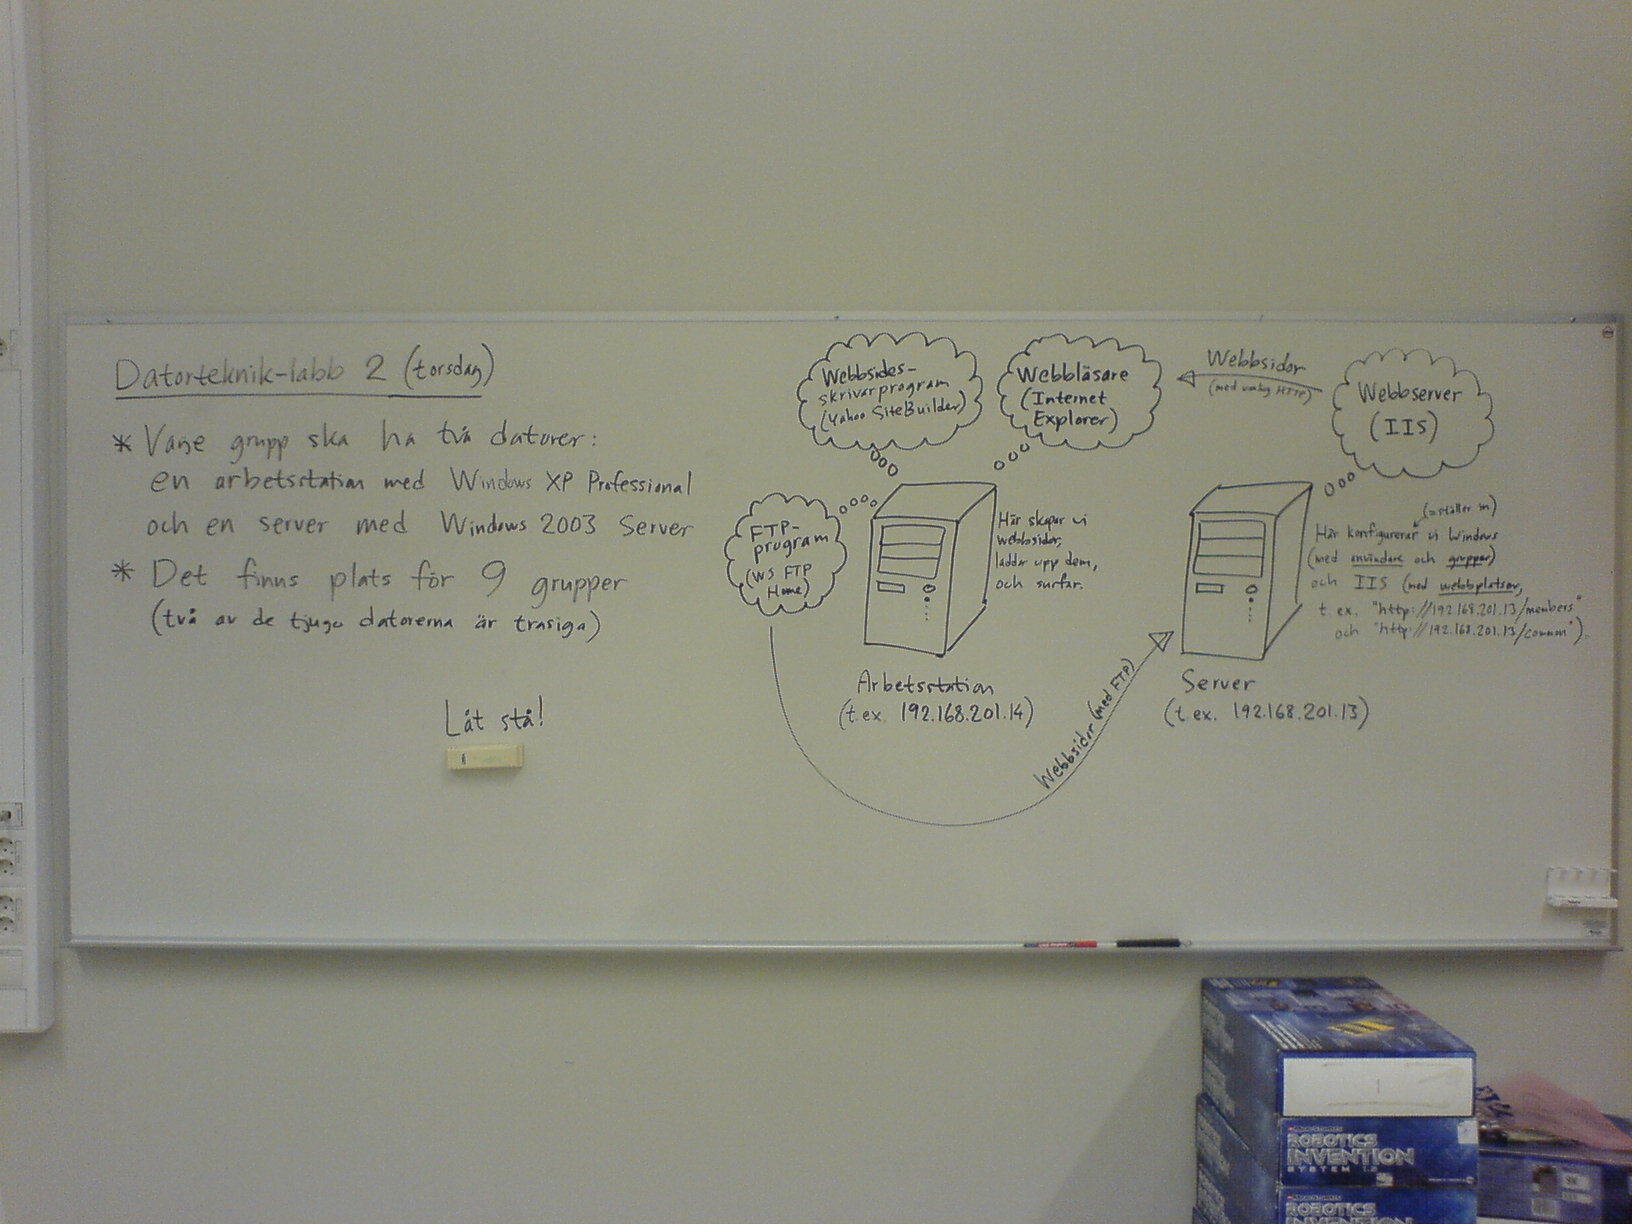 Datorteknik-labb 2 (torsdag)
* Varje grupp ska ha två datorer:
en arbetsstation med Windows XP Professional
och en server med Windows 2003 Server
* Det finns plats för 9 grupper
(två av de tjugo datorerna är trasiga)
Låt stå!
Webbsides-
skrivarprogram
(Yahoo SiteBuilder)
Webbläsare
(Internet
Explorer)
Webbsidor
(med vanlig HTTP)
Webbserver
(IIS)
FTP-
program
(WS FTP
Home)
Här skapar vi
webbsidor,
laddar upp dem,
och surfar.
(=ställer in)
Här konfigurerar vi Windows
(med användare och grupper)
och IIS (med webbplatser,
t. ex. "http://192.168.201.13/members"
och "http://192.168.201.13/common").
Arbetsstation
(t.ex. 192.168.201.14)
Webbsidor (med FTP)
Server
(t.ex. 192.168.201.13)
1
ROBOTICS
INVENTION
SYSTEM
ROBOTICS
INVENTION